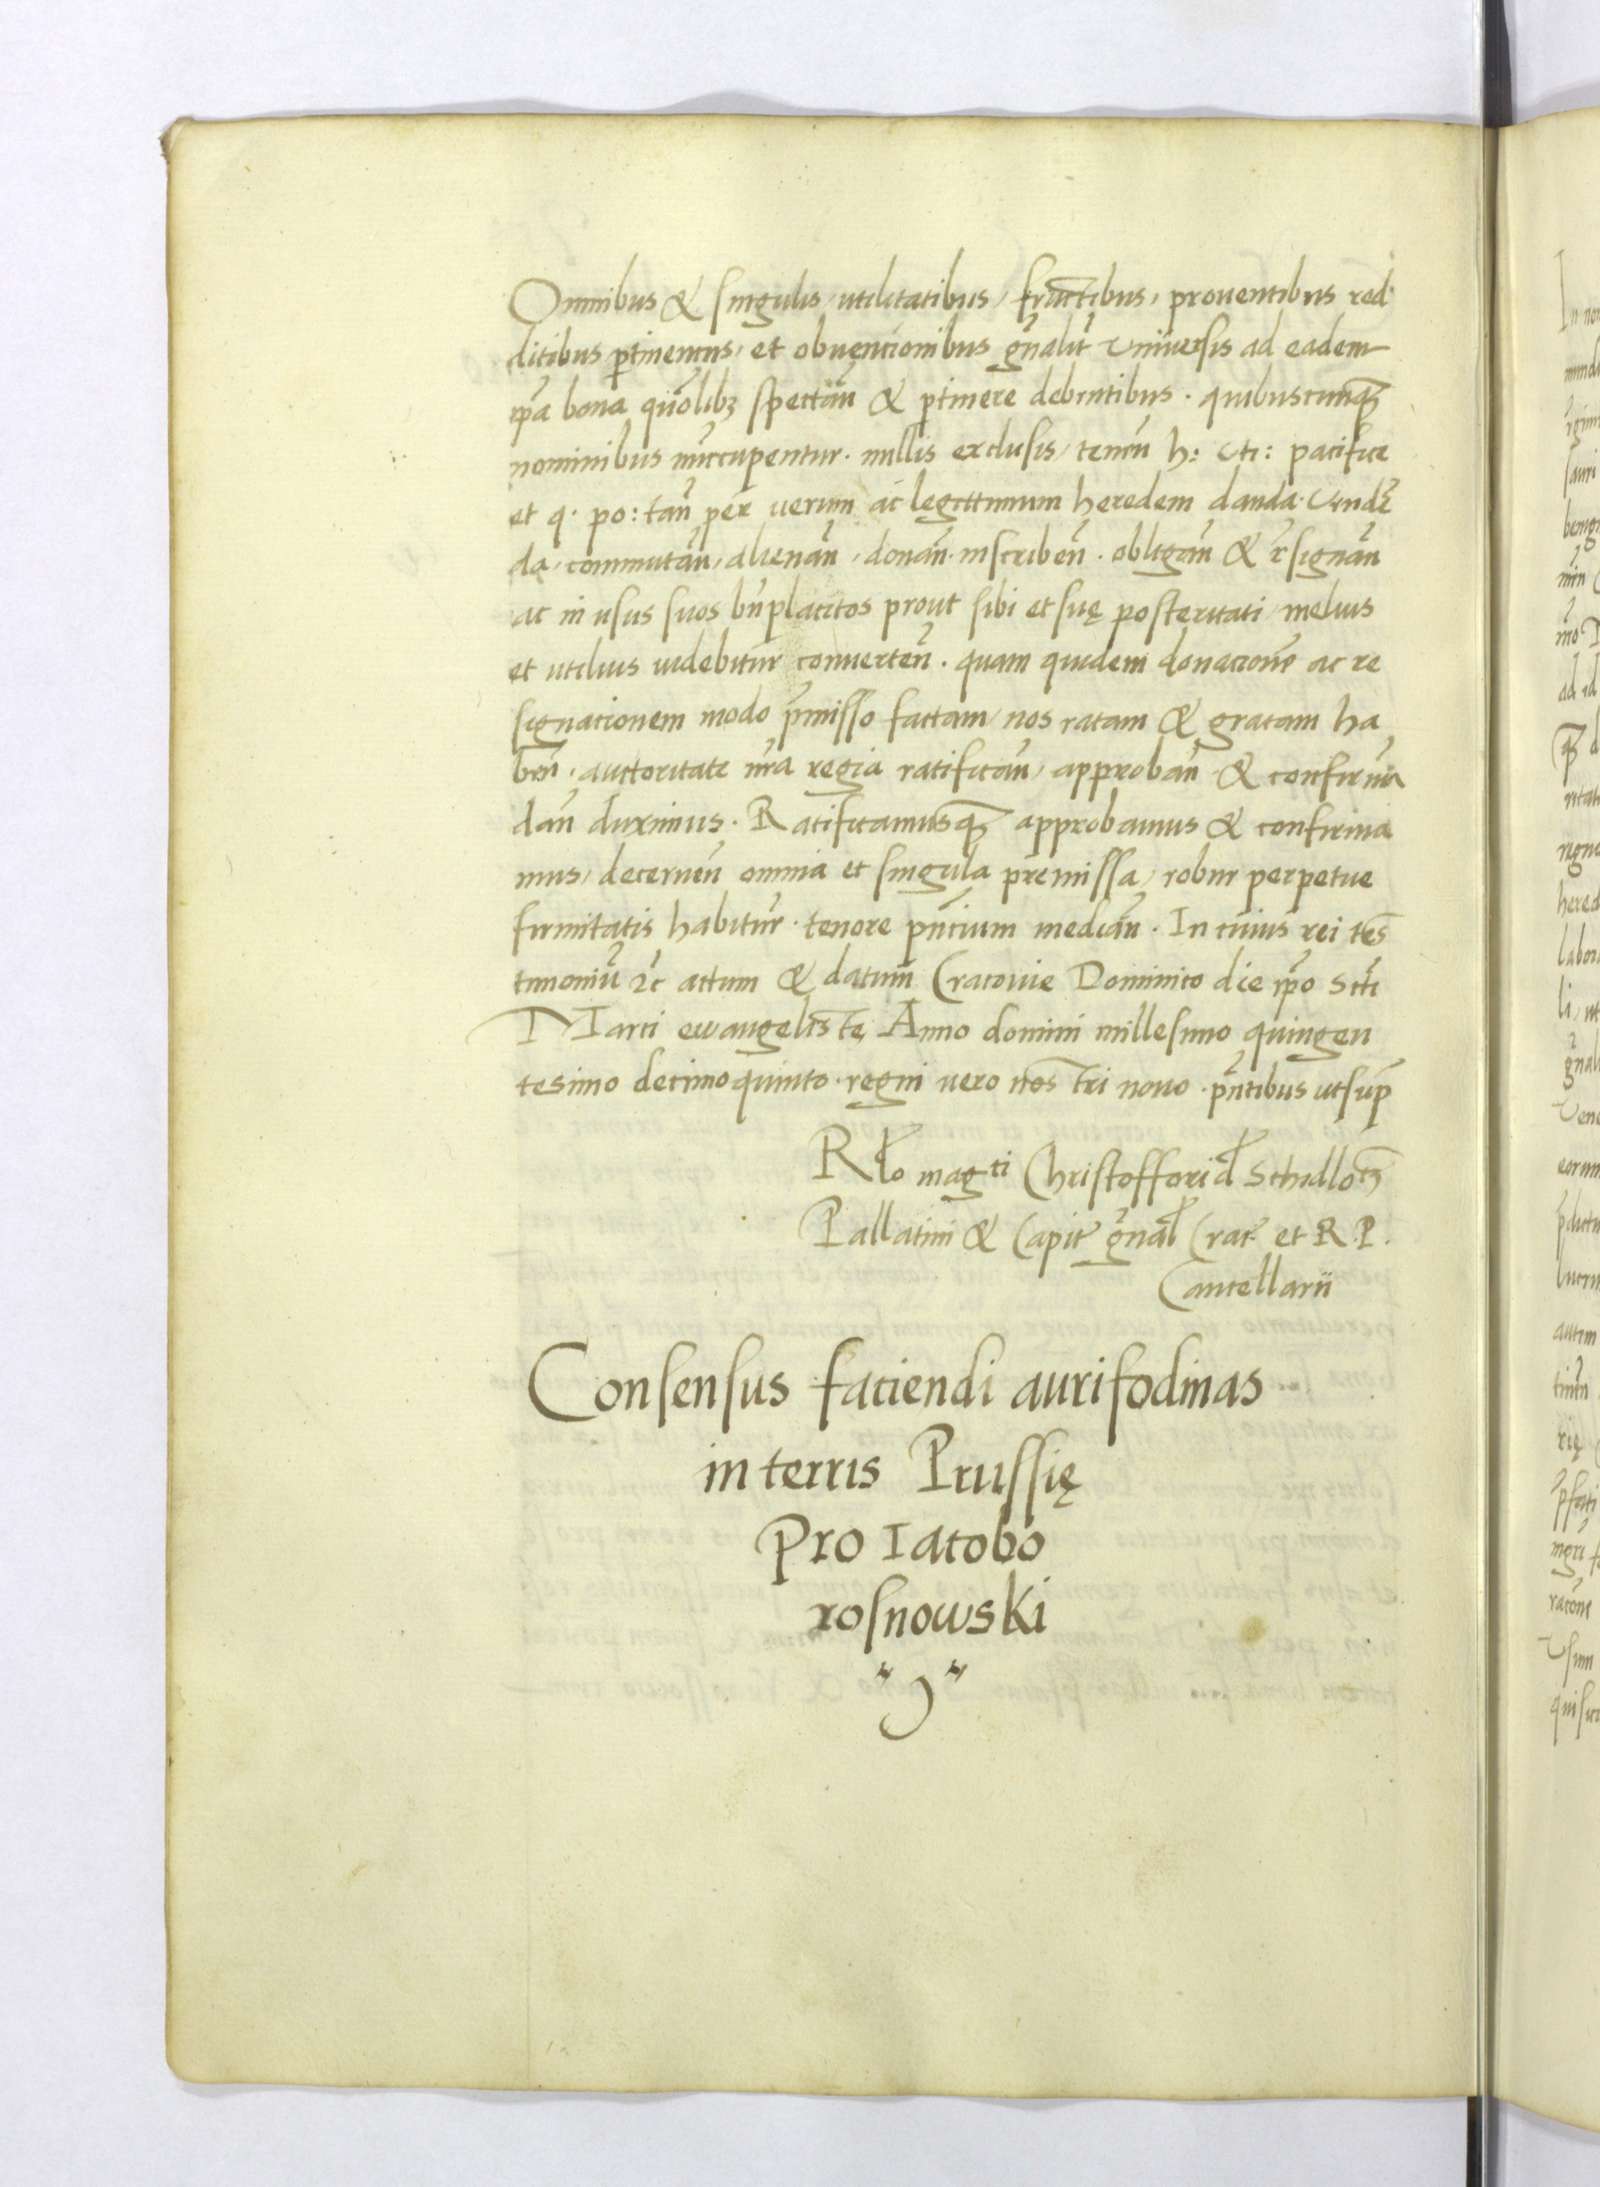 Omnibus & singulis, utilitatibus, fructibus, proventibus red
ditibus ptinencijs, et obvencionibus gnalit Universis ad eadem
ipa bona quolibz spectan & ptinere debentibus. quibuscunq
nominibus nuccupentur. nullis exclusis, tenen h: uti: pacifice
et q. po: tan per verum ac legittimum heredem danda. Venden
da, commutan, alienan, donan. inscriben. obligan & rsignan
ac in usus suos bnplacitos prout sibi et suę posteritati, melius
et utilius videbitur converten. quam quidem donacione ac re
signacionem modo pmisso factam, nos ratam & gratam ha
ben, auctoritate nra regia ratifican, approban & confirma
dan duximus. Ratificamusq approbamus & confirma
mus, decernen omnia et singula premissa, robur perpetue
firmitatis habitur. tenore pncium median. In cuius rei tes
timoniu &c actum & datum Cracovie Dominico die ipo Scti
Marci ewangeliste Anno domini millesimo quingen
tesimo decimo quinto. regni vero nostri nono. pntibus ut sup
Rlo mag ci Christofferi d Schidlo
Pallatini & Capit gnal Crac et R. P.
Cancellarii
Consensus faciendi aurifodinas
in terris Prussię
Pro Iacobo
rosnowski